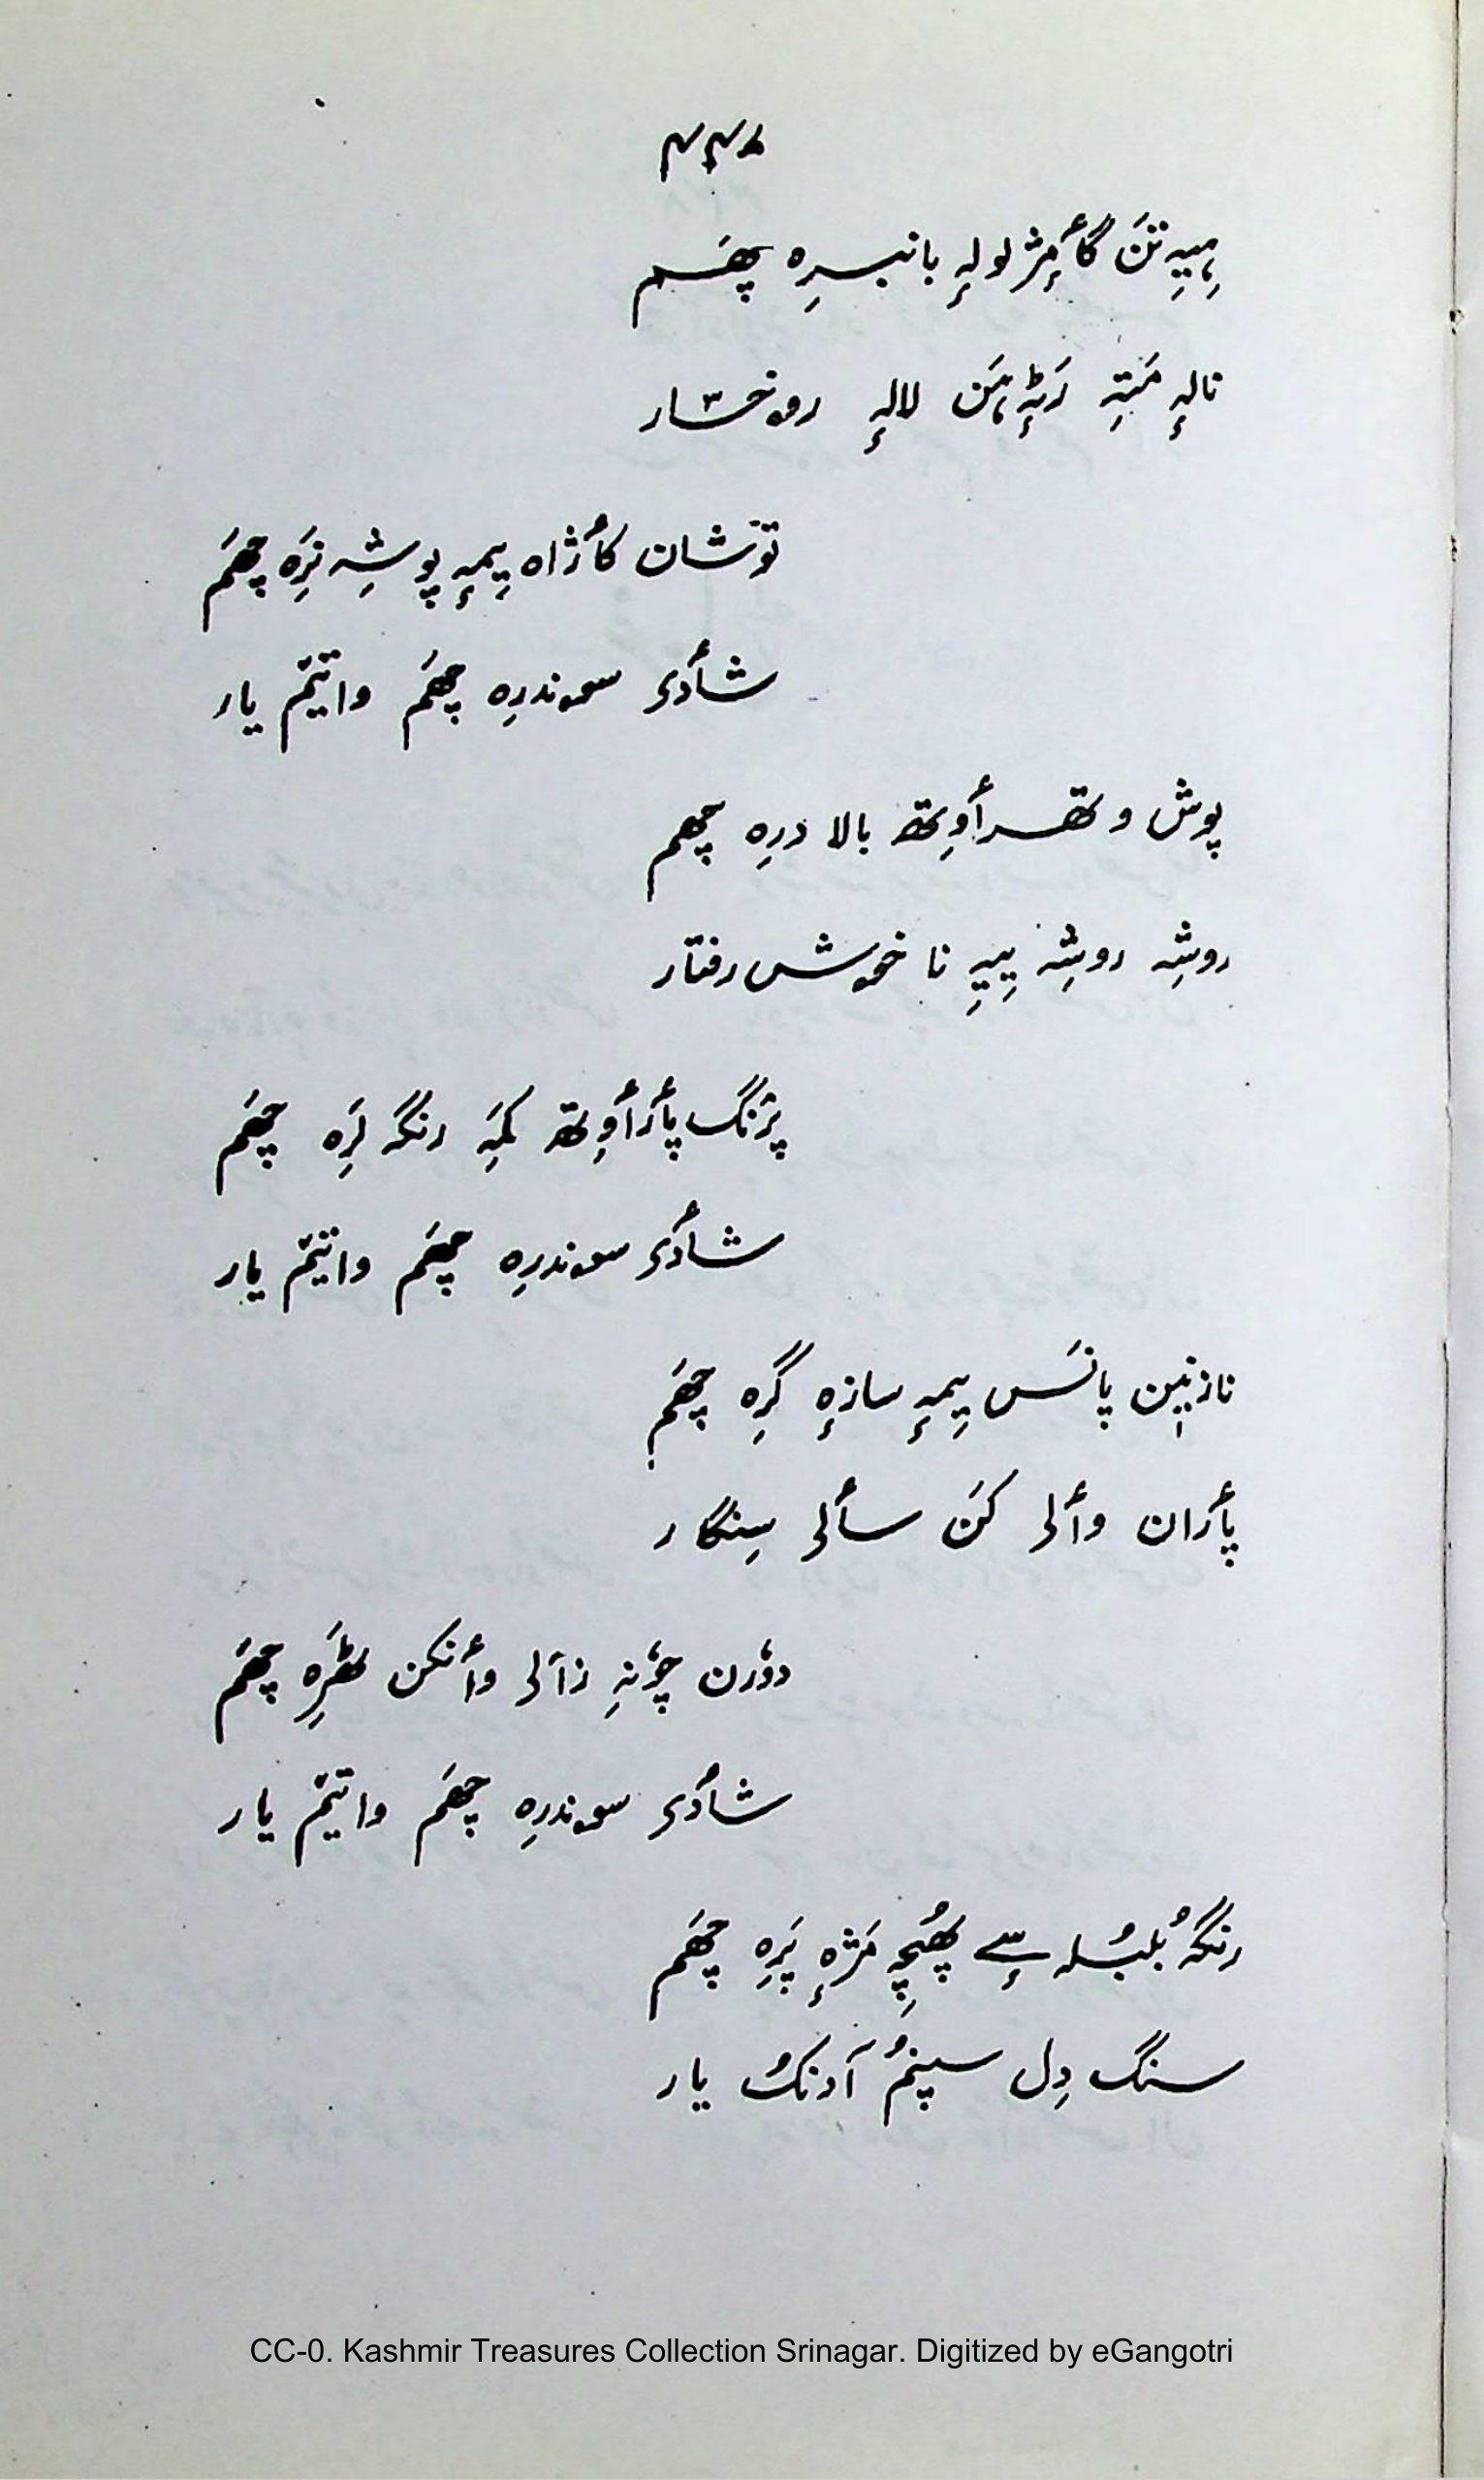 ۲۴۴
ہِیہِ تَنَن گأمٕژ لولہٕ بانبرِہ چھَم
نالہٕ مَتہِ رَٹہٕ ہَن لالہٕ روخسار
توشان کأژاہ یِمہٕ پوشِہ نَرِہ چھَم
شأدی سوندرِہ چھَم واتیَم یار
پوش وتھرأوِتھ بالا درِہ چھم
روشِہ روشِہ یِیہِ نا خوش رفتار
پرٛنگ پأرأوِتھ کمہِ رنگہ لَرِہ چھَم
شأدی سوندرِہ چھَم واتیَم یار
نازنین پانَس یِمہٕ سازہٕ گرِہ چھَم
پأران وألی کَن سألی سِنگار
دوٗرن چٲنہِ زألی وأنکن ٹھَرِہ چھَم
شأدی سوندرِہ چھَم واتیَم یار
رنگہٕ بُلبُلہ سٕے پھُچہِ مَژہٕ پَرِہ چھَم
سنگ دِل سپنُم آدنکُ یار
CC-0. Kashmir Treasures Collection Srinagar. Digitized by eGangotri